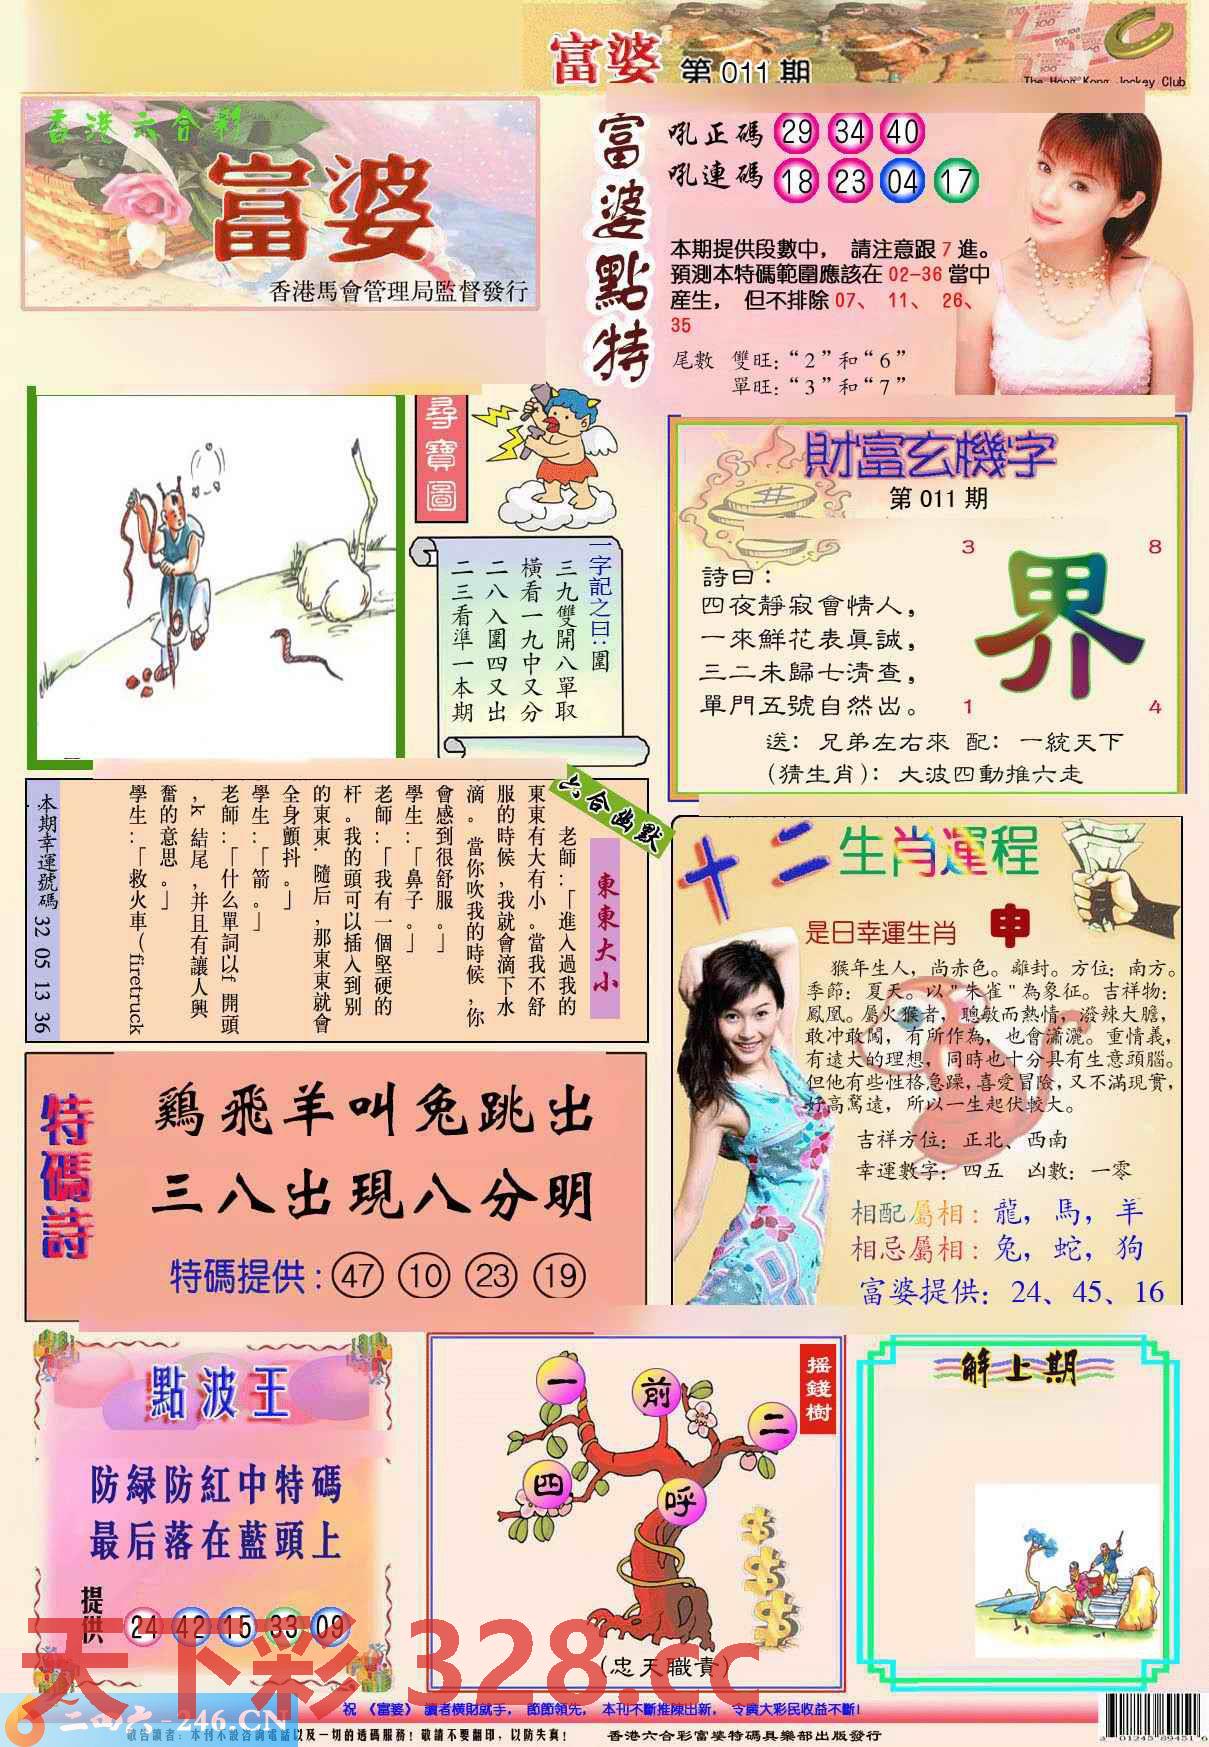 富婆 第 011 期
The Hong Kong Jockey Club
香港六合彩
富婆
香港馬會管理局監督發行
富婆點特
吼正碼 29 34 40
吼連碼 18 23 04 17
本期提供段數中， 請注意跟 7 進。
預測本特碼範圍應該在 02-36 當中
産生， 但不排除 07、 11、 26、
35
尾數 雙旺：“2”和“6”
單旺：“3”和“7”
尋寶圖
一字記之曰：圍
三九雙開八單取
橫看一九中又分
二八入圍四又出
二三看準一本期
財富玄機字
第 011 期
詩曰：
四夜靜寂會情人，
一來鮮花表眞誠，
三二未歸七清查，
單門五號自然出。
3 8
界
1 4
送： 兄弟左右來 配： 一統天下
(猜生肖)： 大波四動推六走
六合幽默
東東大小
老師：「進入過我的
東東有大有小。當我不舒
服的時候，我就會滴下水
滴。當你吹我的時候，你
會感到很舒服。」
學生：「鼻子。」
老師：「我有一個堅硬的
杆。我的頭可以插入到别
的東東，隨后，那東東就會
全身顫抖。」
學生：「箭。」
老師：「什么單詞以f 開頭
，k 結尾，并且有讓人興
奮的意思。」
學生：「救火車(firetruck
本期幸運號碼 32 05 13 36
十二生肖運程
是日幸運生肖 申
猴年生人，尚赤色。離封。方位：南方。
季節：夏天。以"朱雀"為象征。吉祥物：
鳳凰。屬火猴者，聰敏而熱情，潑辣大膽，
敢冲敢闖，有所作為，也會瀟灑。重情義，
有遠大的理想，同時也十分具有生意頭腦。
但他有些性格急躁，喜愛冒險，又不滿現實，
好高騖遠，所以一生起伏較大。
吉祥方位：正北、西南
幸運數字：四五 凶數：一零
相配屬相：龍，馬，羊
相忌屬相：兔，蛇，狗
富婆提供：24、45、16
特碼詩
鷄飛羊叫兔跳出
三八出現八分明
特碼提供：47 10 23 19
點波王
防緑防紅中特碼
最后落在藍頭上
提供 24 42 15 33 09
搖錢樹
一 前 二
四 呼
(忠天職責)
解上期
天下彩 328.cc
三四六-246.CN
祝 《富婆》 讀者横財就手， 節節領先， 本刊不斷推陳出新， 令廣大彩民收益不斷!
敬告讀者：本刊不設咨詢電話以及一切的透碼服務！敬請不要翻印，以防失真！ 香港六合彩富婆特碼具樂部出版發行